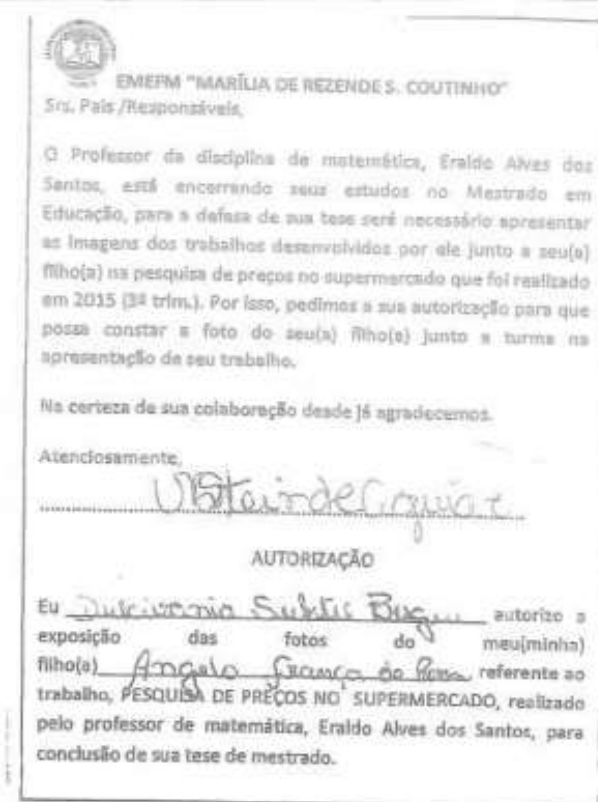 EMEFM "MARÍLIA DE REZENDE S. COUTINHO"
Srs. Pais /Responsáveis,
O Professor da disciplina de matemática, Eraldo Alves dos
Santos, está encerrando seus estudos no Mestrado em
Educação, para a defesa de sua tese será necessário apresentar
as imagens dos trabalhos desenvolvidos por ele junto a seu(a)
filho(a) na pesquisa de preços no supermercado que foi realizado
em 2015 (3º trim.). Por isso, pedimos a sua autorização para que
possa constar a foto do seu(a) filho(a) junto a turma na
apresentação de seu trabalho.
Na certeza de sua colaboração desde já agradecemos.
Atenciosamente,
AUTORIZAÇÃO
Eu autorizo a
exposição das fotos do meu(minha)
filho(a) Angelo França da referente ao
trabalho, PESQUISA DE PREÇOS NO SUPERMERCADO, realizado
pelo professor de matemática, Eraldo Alves dos Santos, para
conclusão de sua tese de mestrado.